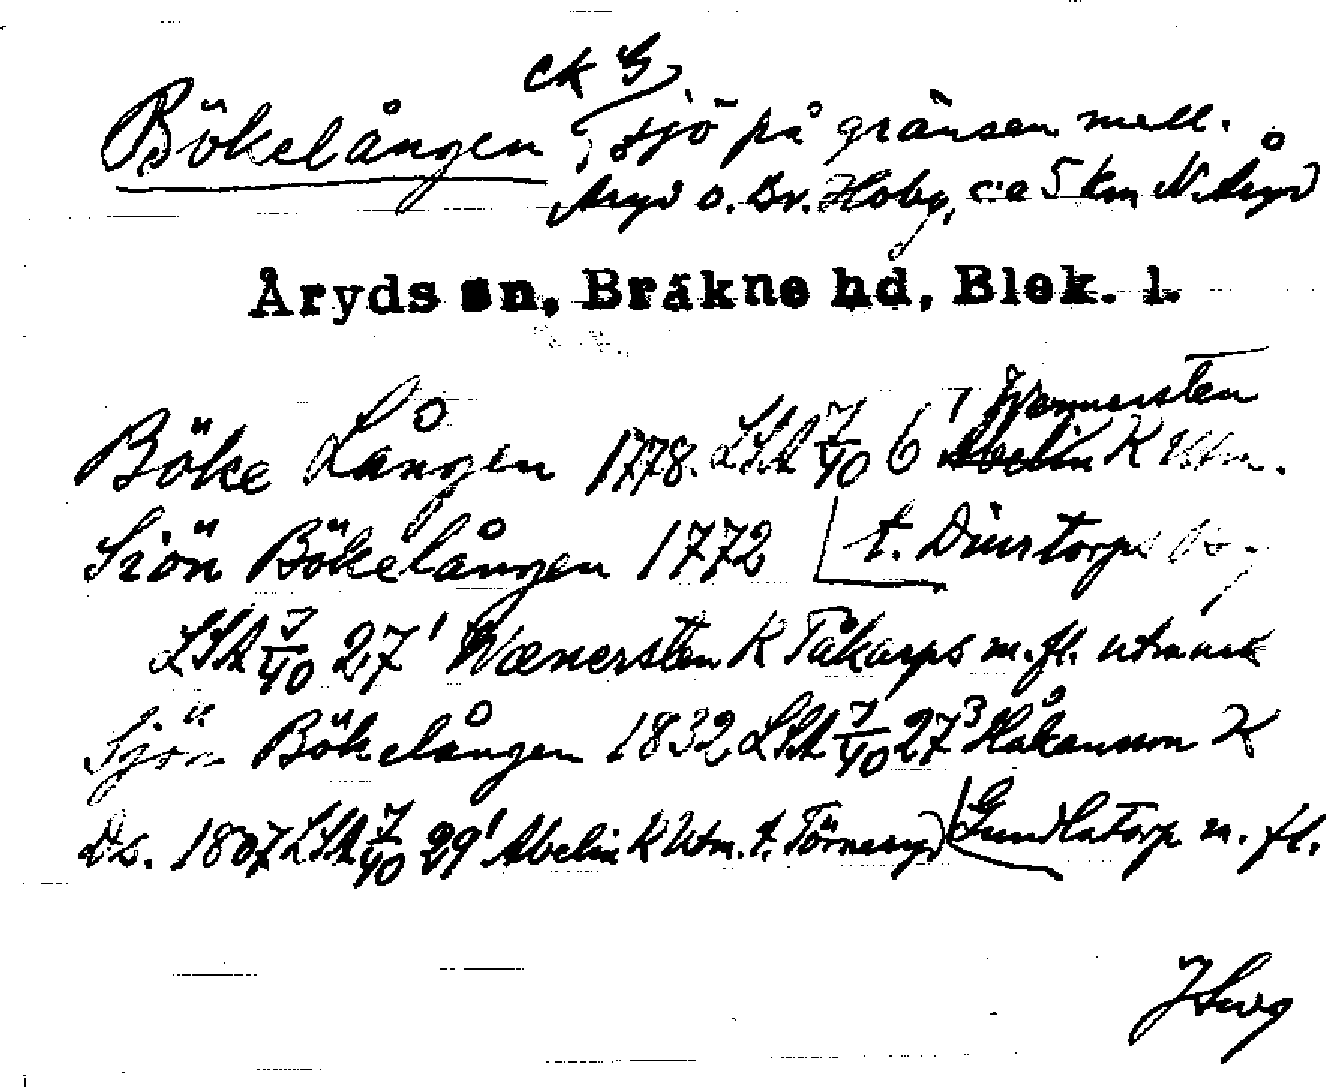 ck G
Bökelången, sjö på gränsen mell.
Åryd o. Br. Hoby, c:a 5 km N. Åryd
Åryds sn, Bräkne hd, Blek. l.
Wennersten
Böke Lången 1778. LSA 7/40 6¹ Abelin K Utm.
Siön Bökelången 1772 t. Dönstorps
LSA 7/40 27¹ Wænersten K Tåkarps m.fl. utmark
Sjön Bökelången 1832 LSA 7/40 27³ Håkansson K
Ds. 1807 LSA 7/40 29¹ Abelin K Utm. t. Törneryd Gundlatorp m. fl.